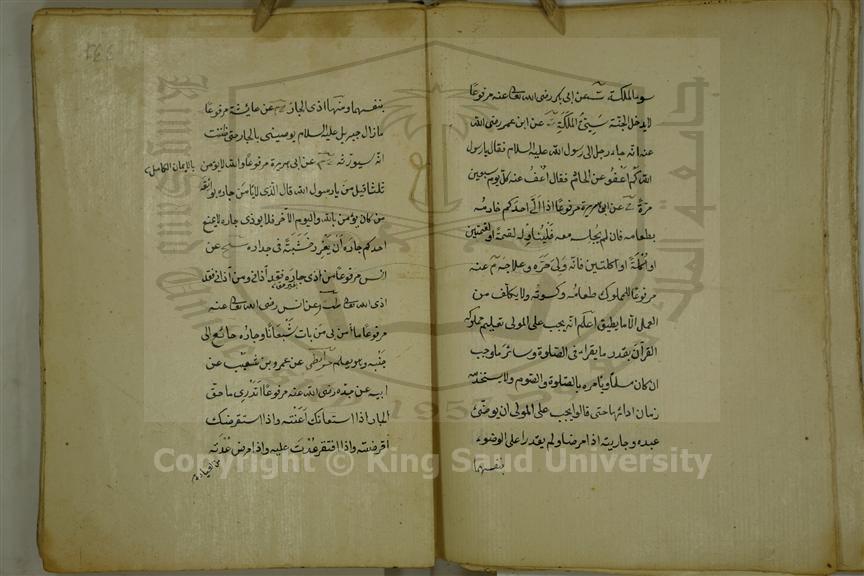 سوء الملكة ت عن ابى بكر رضى الله تعا عنه مرفوعا
لا يدخل الجنة سيئ الملكة عن ابن عمر رضى الله
عنه انه جاء رجل الى رسول الله عليه السلام فقال يا رسول
الله كم اعفو عن الخادم فقال اعف عنه كل يوم سبعين
مرة عن ابى هريرة مرفوعا اذا اتى احدكم خادمه
بطعامه فان لم يجلسه معه فليناوله لقمة او لقمتين
او اكلة او اكلتين فانه ولى حره وعلاجه م عنه
مرفوعا للمملوك طعامه وكسوته ولا يكلف من
العمل الا ما يطيق اعلم انه يجب على المولى تعليم مملوكه
القرآن بقدر ما يقراء فى الصلوة وسائر ما وجب
ان كان مسلما ويأمره بالصلوة والصوم ولا يستخدمه
زمان ادائها حتى قالوا يجب على المولى ان يوضئ
عبده وجاريته اذا مرضا ولم يقدرا على الوضوء
بنفسهما
بنفسهما ومنها اذى الجار عن عايشة مرفوعا
ما زال جبريل عليه السلام يوصينى بالجار حتى ظننت
انه سيورثه عن ابى هريرة مرفوعا والله لا يؤمن
بالايمان الكامل
ثلثا قيل من يا رسول الله قال الذى لا يأمن جاره بوائقه
من كان يؤمن بالله واليوم الآخر فلا يوذى جاره لا يمنع
احدكم جاره ان يغرز خشبة فى جداره عن
انس مرفوعا من اذى جاره فقد آذانى ومن آذانى فقد
اذى الله تعا عن انس رضى الله تعا عنه
مرفوعا ما آمن بى من بات شبعانا وجاره جائع الى
جنبه وهو يعلم عن عمرو بن شعيب عن
ابيه عن جده رضى الله عنه مرفوعا اتدرى ما حق
الجار اذا استعانك اعنته واذا استقرضك
اقرضته واذا افتقر عدت عليه واذا مرض عدته
Copyright © King Saud University